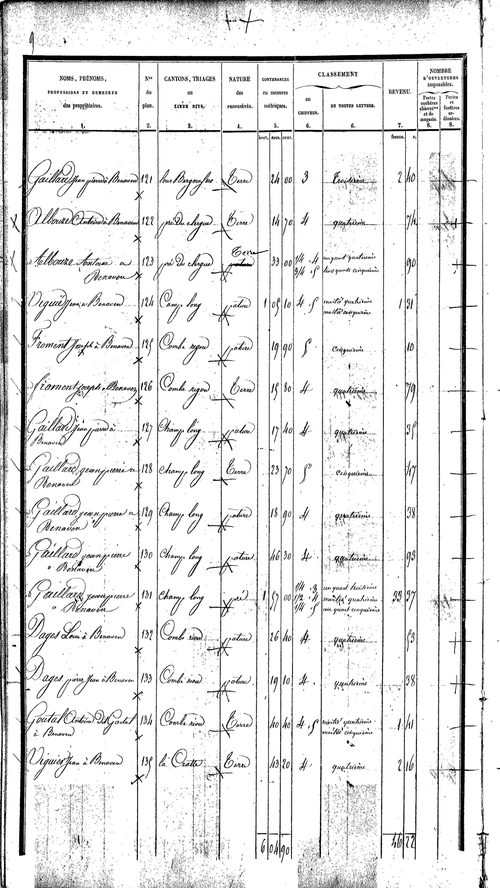 9
NOMS, PRÉNOMS,
PROFESSIONS ET DEMEURES
des propriétaires.
Nos
du
plan.
CANTONS, TRIAGES
ou
LIEUX DITS.
NATURE
des
PROPRIÉTÉS.
CONTENANCES
en mesures
métriques.
CLASSEMENT
en
CHIFFRES.
EN TOUTES LETTRES.
REVENU.
NOMBRE
D'OUVERTURES
imposables.
Portes
cochères
charret.res
et de
magasin.
Portes
et
fenêtres
or-
dinaires.
1. 2. 3. 4. 5. 6. 6. 7. 8. 8.
hect. ares. cent. francs. c.
Gaillard Jean pierre à Benaven 121 Terre 24 00 3 troisième 2 40
Albouze Antoine à Benaven 122 pré Terre 14 70 4 quatrième 74
Albouze Antoine a 123 pré Terre 33 00 1/4 . 4 un quart quatrième 90
Benaven 3/4 . 5 trois quarts cinquième
Viguié Jean à Benaven 124 Camp long pature 1 05 10 4 . 5 moitié quatrième 1 31
moitié cinquième
Froment Joseph à Benaven 125 Combe pature 19 90 5 cinquième 10
froment Joseph à Benaven 126 Combe Terre 15 80 4 quatrième 79
Gaillard jean pierre à 127 Champ long pature 17 40 4 quatrième 35
Benaven
Gaillard jean pierre a 128 Champ long Terre 23 70 5 cinquième 47
Benaven
Gaillard jean pierre a 129 Champ long pature 18 90 4 quatrième 38
Benaven
Gaillard jean pierre 130 Champ long pature 46 30 4 quatrième 93
a Benaven
Gaillard jean pierre 131 Champ long pré 1 57 00 1/4 . 3 un quart troisième 33 37
a Benaven 1/2 . 4 moitié quatrième
1/4 . 5 un quart cinquième
Dages Louis à Benaven 132 Combe pature 26 40 4 quatrième 53
Dages Jean à Benaven 133 Combe pature 19 10 4 quatrième 38
Antoine 134 Combe Terre 40 40 4 . 5 moitié quatrième 1 41
à Benaven moitié cinquième
Viguié Jean à Benaven 135 la Terre 43 20 4 quatrième 2 16
6 04 90 46 22